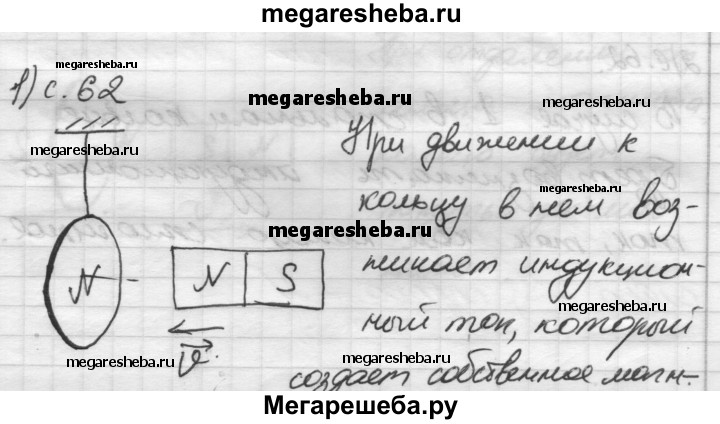 megaresheba.ru
megaresheba.ru
1) с. 62
megaresheba.ru
megaresheba.ru
megaresheba.ru
При движении к
кольцу в нем воз-
megaresheba.ru
megaresheba.ru
N - N S
никает индукцион-
megaresheba.ru
ный ток, который
v
megaresheba.ru
megaresheba.ru
создает собственное магн-
Мегарешеба.ру